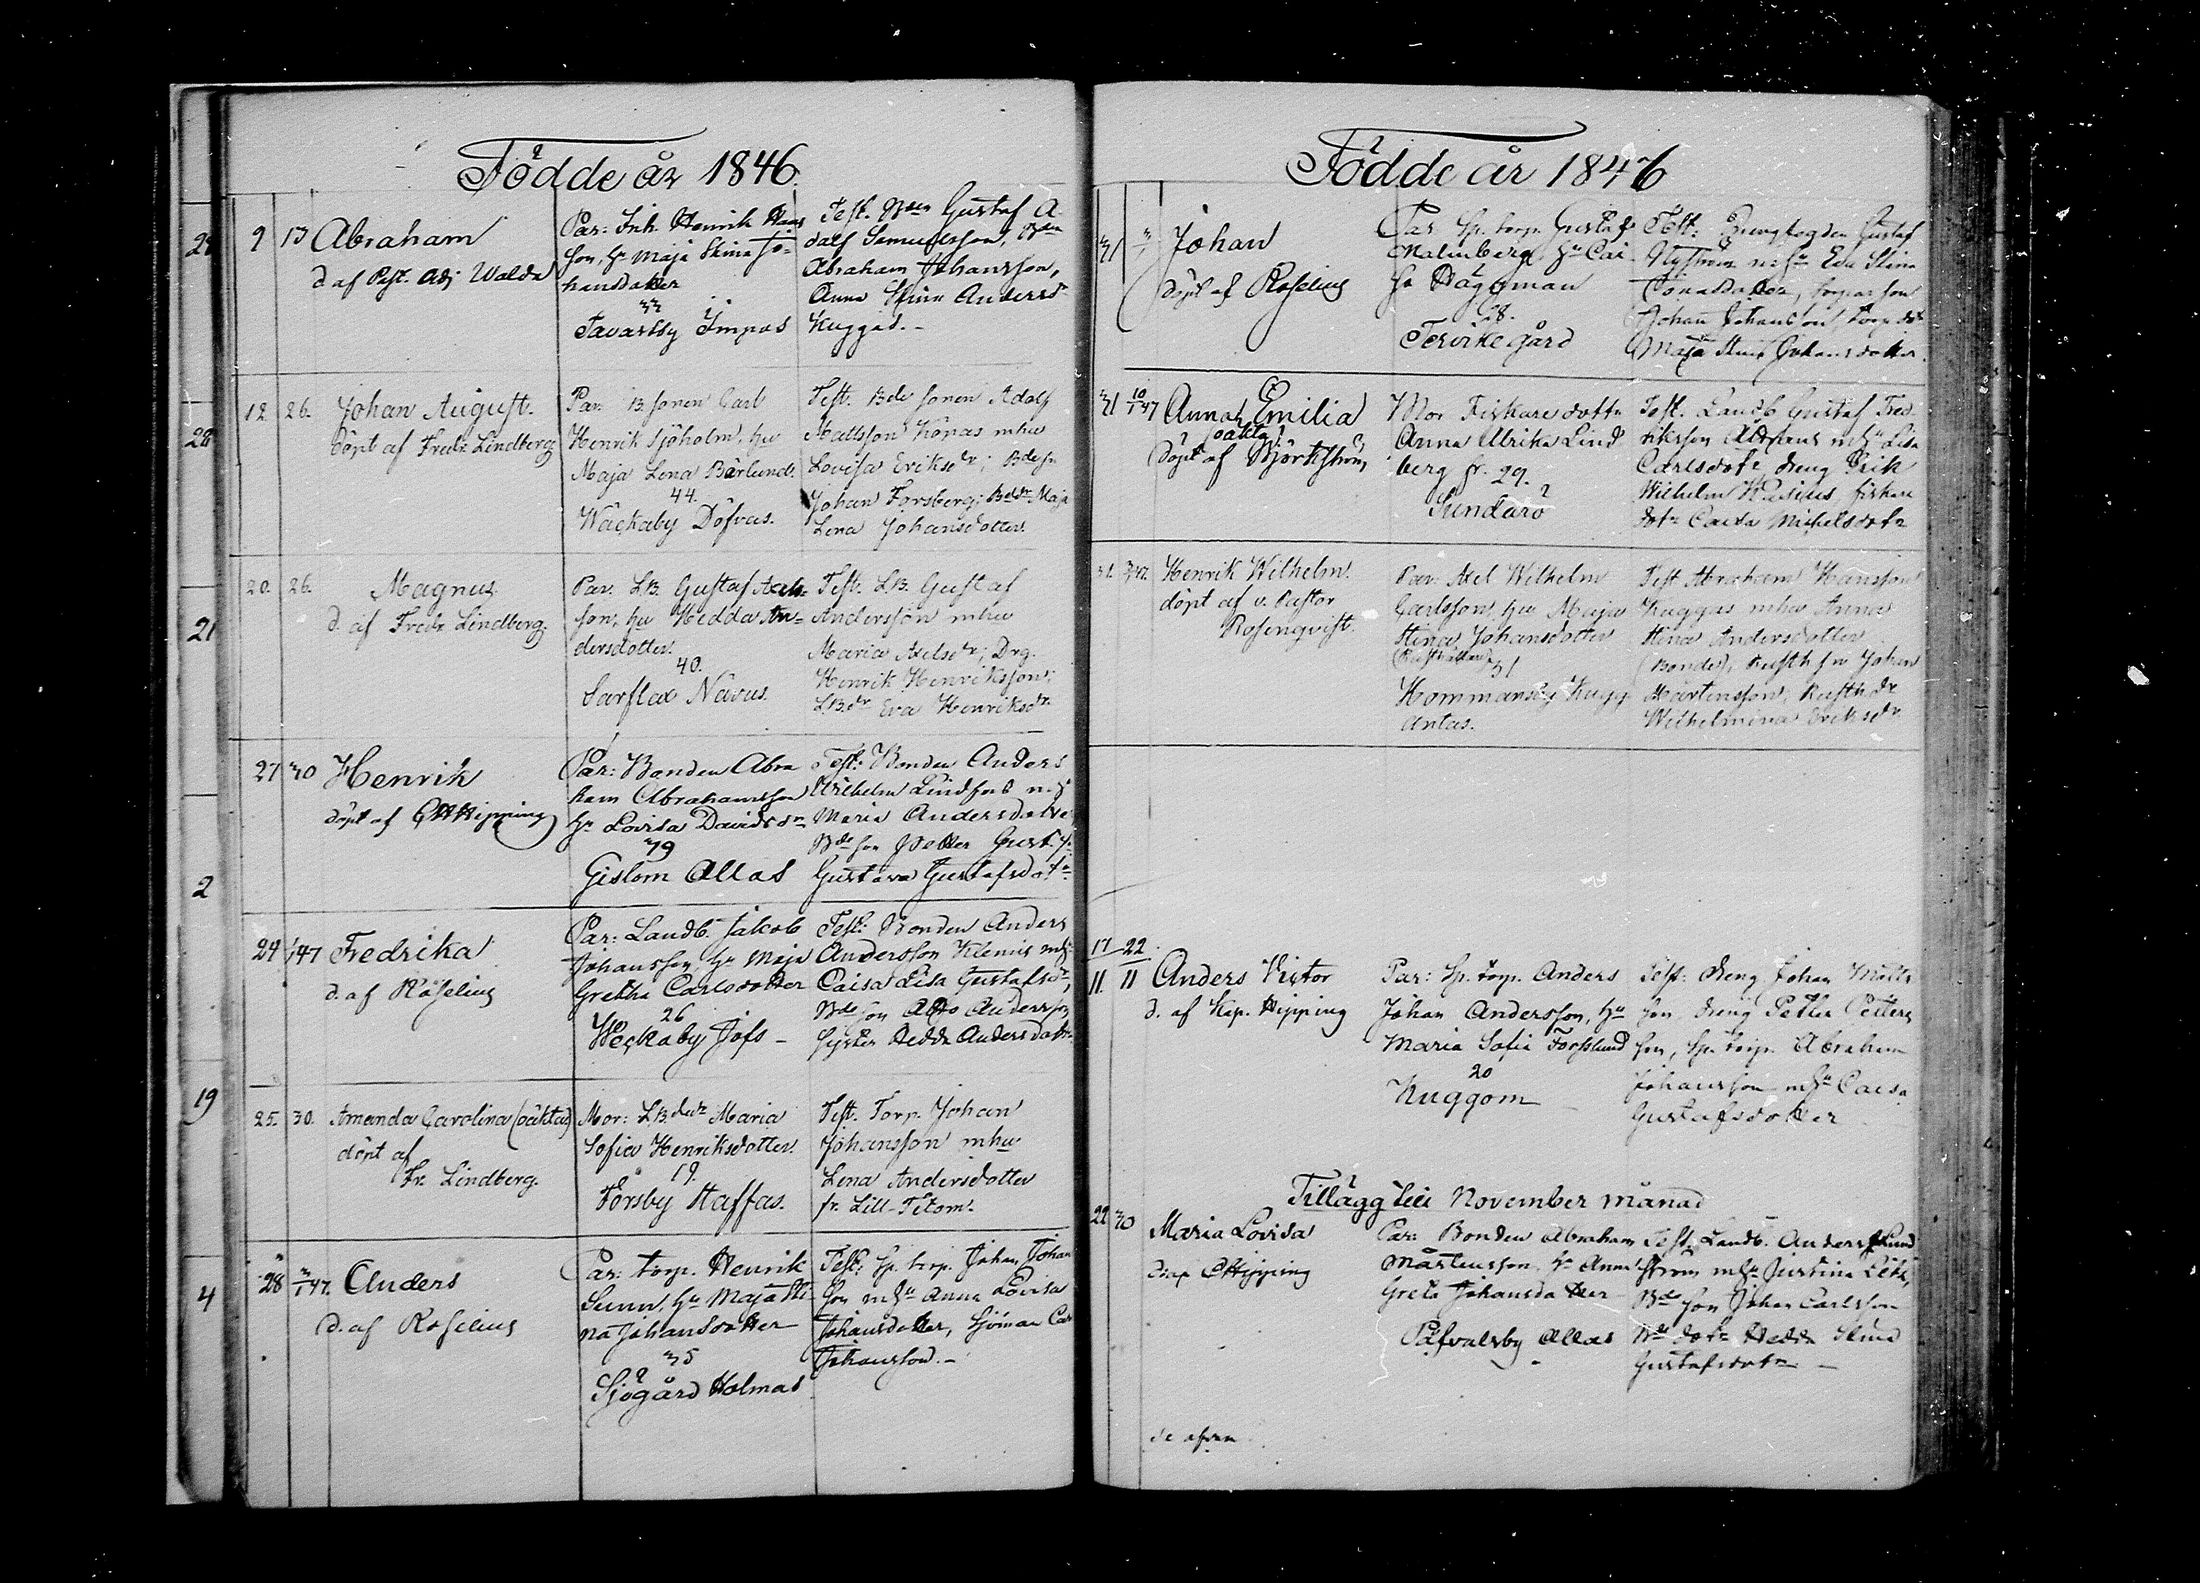 Födde år 1846.
29
9 13 Abraham
d af Past. Adj Walda
Par: Inh. Henrik Hans
son, hu Maja Stina Jo-
hansdotter
33
Tavastby Impas
Test. Bden Gustaf A-
dolf Samuelsson, Bden
Abraham Johansson,
Anna Stina Andersdr
Kuggas.-
28
12. 26. Johan August.
döpt af Fredr Lindberg
Par. B. sonen Carl
Henrik Sjöholm, hu
Maja Lena Bärlund.
44.
Wäckaby Döfvas.
Test. Bde sonen Adolf
Mattsson Könas mhu
Lovisa Eriksdr; Bdesn
Johan Forsberg; Bddr Maja
Lena Johansdotter.
21
20. 26. Magnus
d. af Fredr Lindberg.
Par. LB. Gustaf
son, hu Hedda An-
dersdotter.
40.
Sarflax Nävus.
Test. LB. Gustaf
Andersson mhu
Maria Axelsdr; Drg.
Henrik Henriksson;
LBdr Eva Henriksdr.
2
27 30 Henrik
döpt af CHHipping
Par: Bonden Abra
ham Abrahamsson
hu Lovisa Davidsdr
39
Gislom Allas
Test: Bonden Anders
Wilhelm Lindfors mh
Maria Andersdotter
Bde son Petter Gust.
Gustava Gustafsdotr
24 1/47 Fredrika
d. af Roselius
Par: Landb. Jakob
Johansson, hu Maja
Gretha Carlsdotter
26
Weckaby Jofs -
Test: Bonden Anders
Andersson Klemis mhu
Caisa Lisa Gustafsdr,
Bde son Andersson
syster Hedda Andersdotr
19
25. 30. Amanda Carolina (oäkta)
döpt af
Fr. Lindberg.
Mor: LB. dotr Maria
Sofia Henriksdotter.
19.
Forsby Staffas.
Test. Torp. Johan
Johansson mhu
Lena Andersdotter
fr. Lill-Tetom.
4
28 3/1 47. Anders
d. af Roselius
Par: torp. Henrik
Sunn, hu Maja Sti
na Johansdotter
35
Sjögård Holmas
Test: Sp. torp. Johan Johan
son mhu Anna Lovisa
Johansdotter, Sjöman Carl
Johansson.-
Födde år 1846
31 Johan
döpt af Roselius
Par Sp. torp. Gustaf
Malmberg hu Cai-
sa Häggman
28.
Tervikgård
Test: Gustaf
Nyström mhu Eva Stina
son
Johan Johansson, torp. dr
Maja Stina Johansdotter.
31 10/1 47 Anna Emilia
oäkta
Döpt af Björkström
Mor Fiskare dottr
Anna Ulrika Lind
berg fr. 29.
Sundarö
Test. Landb. Gustaf Fred-
riksson mhu Lisa
Carlsdotr, dreng Erik
Wilhelm fiskare
dotr Caisa Michelsdotr
31. 3/47. Henrik Wilhelm.
döpt af v. Pastor
Rosenqvist.
Par: Axel Wilhelm
Carlsson, hu Maja
Stina Johansdotter
(Rusthållare)
31
Hommansby Kugg
antas.
Test Abraham Hansson
Kuggas mhu Anna
Stina Andersdotter
(Bonde), Rusth sn Johan
Mårtensson, Rusth dr
Wilhelmina Eriksdr
17 22
11 11 Anders Victor
d. af Kap. Hipping
Par: Sp. torp. Anders
Johan Andersson, hu
Maria Sofia Forsslund
20
Kuggom
Test: dreng Johan Matts
son dreng Petter Petters
son, Sp. torp. Abraham
Johansson mhu Caisa
Gustafsdotter
Tillägg till November månad
22 30 Maria Lovisa
CHHipping
Par: Bonden Abraham
Mårtensson, hu Anna
Greta Johansdotter
Påfvalsby Allas
Test. Landb. Anders Lund
ström mhu Justina
Bde son Johan Carlsson
Bde dotr Hedda Stina
Gustafsdotr -